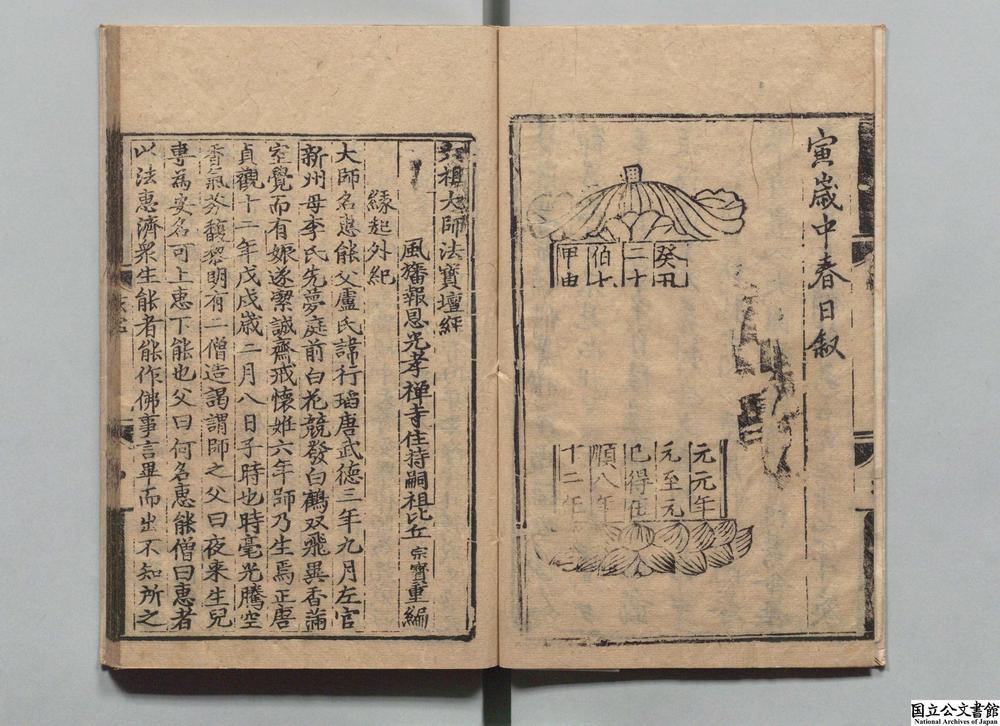 寅歲中春日叙
癸丑
二十
伯七
甲申
元元年
元至元
已得住
順八年
十二年
六祖大師法寶壇經
風旛報恩光孝禪寺住持嗣祖比丘宗寶重編
緣起外紀
大師名惠能父盧氏諱行瑫唐武德三年九月左官
新州母李氏先夢庭前白花競發白鶴双飛異香滿
室覺而有娠遂潔誠齋戒懷姙六年師乃生焉正唐
貞觀十二年戊戌歲二月八日子時也時毫光騰空
香氣芬馥黎明有二僧造謁謂師之父曰夜來生兒
專為安名可上惠下能也父曰何名惠能僧曰惠者
以法惠濟衆生能者能作佛事言畢而出不知所之
国立公文書館
National Archives of Japan